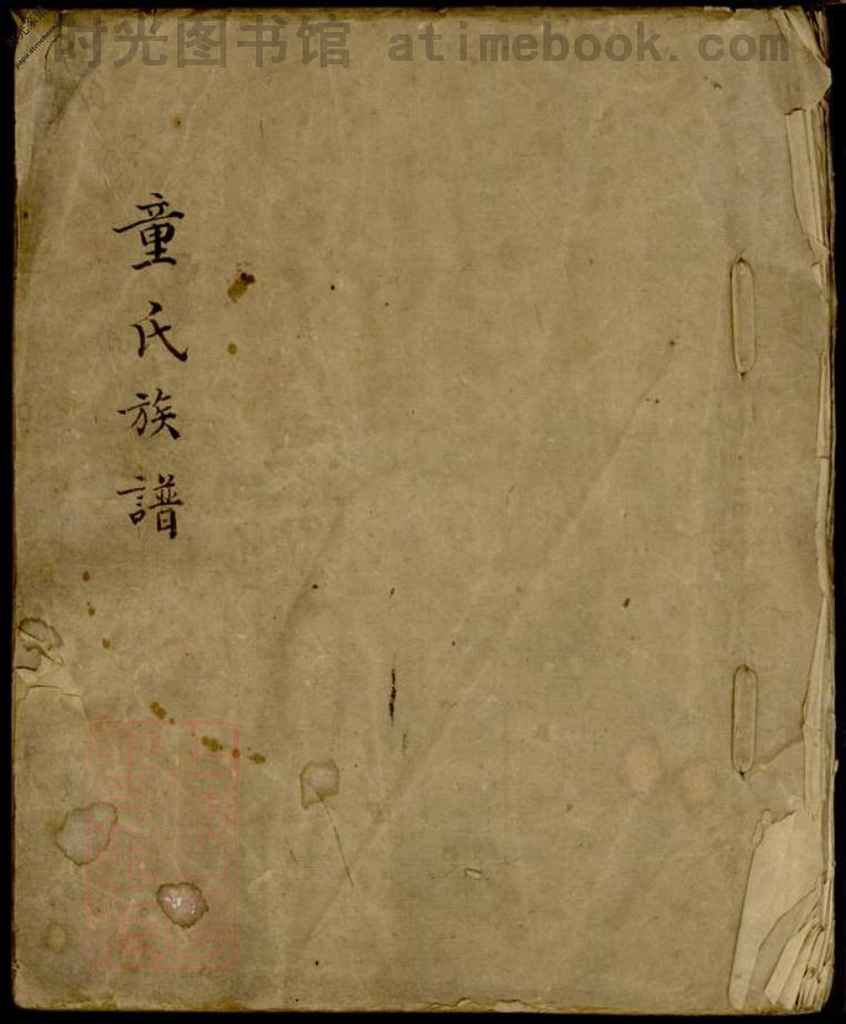 时光图书馆 atimebook.com
童氏族譜